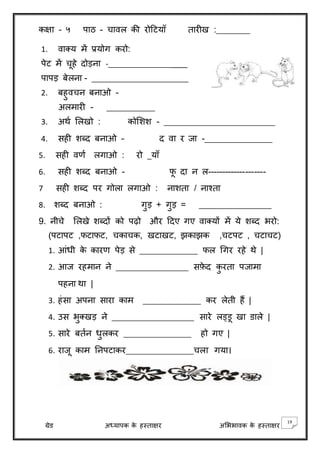 कक्षा - ५ पाठ - चावल की रोटियाँ तारीख :_______
1. वाक्य में प्रयोग करो:
पेट में चूहे दोड़ना -__________________
पापड़ बेलना - ______________________
2. बहुवचन बनाओ -
अलमारी - ___________
3. अर्थ लिखो : कोशिश - _________________________
4. सही शब्द बनाओ - द वा र जा -_______________
5. सही वर्ण लगाओ : रो _याँ
6. सही शब्द बनाओ - फू दा न ल--------------------
7 सही शब्द पर गोला लगाओ : नाशता / नाश्ता
8. शब्द बनाओ : गुड़ + गुड़ = ________________
9. नीचे लिखे शब्दों को पढ़ो और दिए गए वाक्यों में ये शब्द भरो:
(पटापट ,फटाफट, चकाचक, खटाखट, झकाझक ,चटपट , चटाचट)
1. आंधी के कारण पेड़ से _____________ फल गिर रहे थे |
2. आज रहमान ने ________________ सफ़ेद कुरता पजामा
पहना था |
3. हंसा अपना सारा काम _____________ कर लेती हैं |
4. उस भुक्खड़ ने __________________ सारे लड्डू खा डाले |
5. सारे बर्तन धुलकर _______________ हो गए |
6. राजू काम निपटाकर_______________चला गया।
ग्रेड अध्यापक के हस्ताक्षर अभिभावक के हस्ताक्षर
14